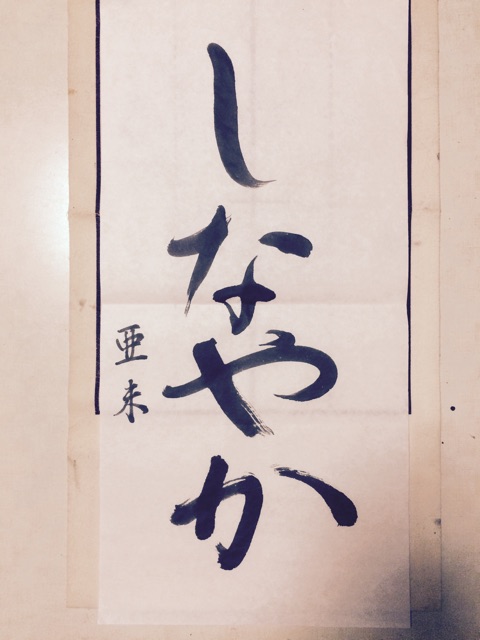 しなやか
亜未